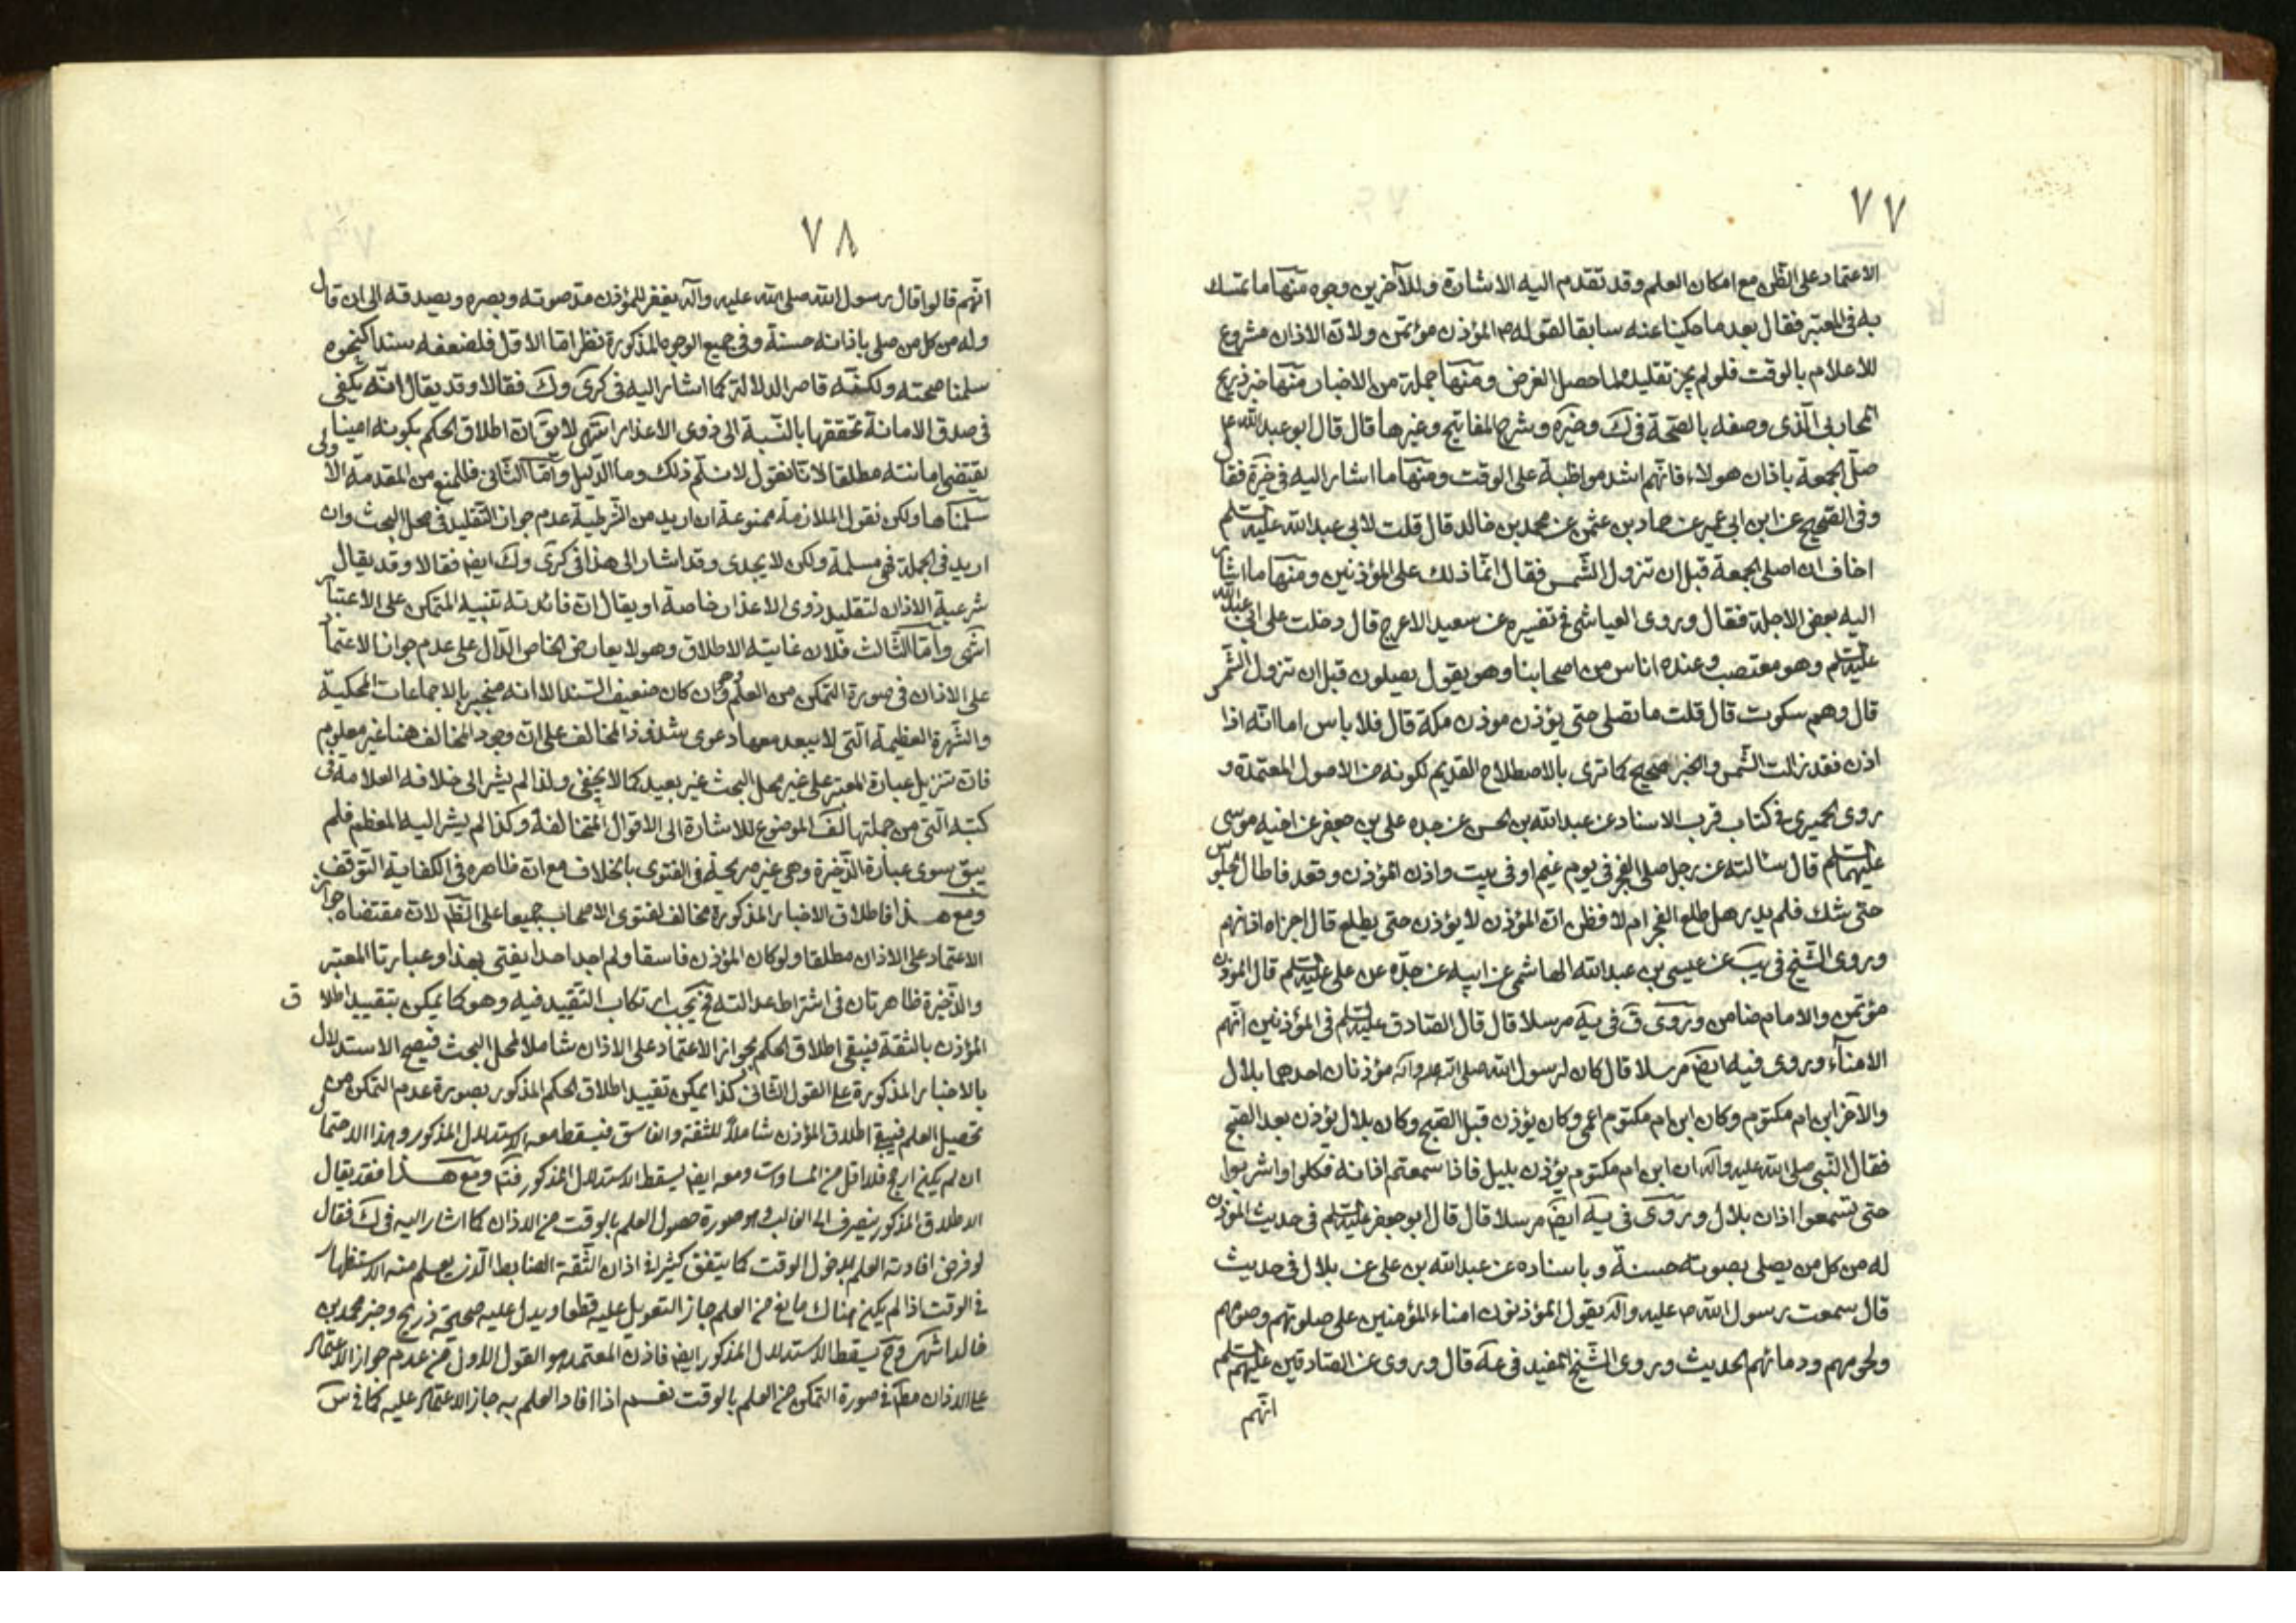 ٧٧
الاعتماد على الظن مع امكان العلم وقد تقدم اليه الاشارة وللآخرين وجوه منها ما تمسك
به فى المعتبر فقال بعد ما حكينا عنه سابقا لقوله ص المؤذن مؤتمن ولان الاذان مشروع
للاعلام بالوقت فلو لم يجز تقليده لما حصل الغرض ومنها جملة من الاخبار منها خبر ذريح
المحاربى الذى وصفه بالصحة فى ك وخيرة وشرح المفاتيح وغيرها قال قال ابو عبد الله ع
صل الجمعة باذان هولاء فانهم اشد مواظبة على الوقت ومنها ما اشار اليه فى خيرة فقال
وفى الصحيح عن ابن ابى عمير عن حماد بن عثمن عن محمد بن خالد قال قلت لابى عبد الله عليه السلم
اخاف ان اصلى الجمعة قبل ان تزول الشمس فقال انما ذلك على المؤذنين ومنها ما اشار
اليه بعض الاجلة فقال وروى العياشى فى تفسيره عن سعيد الاعرج قال دخلت على ابى عبد الله
عليه السلم وهو مغتضب وعنده اناس من اصحابنا وهو يقول يصلون قبل ان تزول الشمس
قال وهم سكوت قال قلت ما نصلى حتى يؤذن موذن مكة قال فلا باس اما انه اذا
اذن فقد زالت الشمس والخبر صحيح كما ترى بالاصطلاح القديم لكونه من الاصول المعتمدة و
روى الحميرى فى كتاب قرب الاسناد عن عبد الله بن الحسن عن جده على بن جعفر عن اخيه موسى
عليهما السلم قال سئالته عن رجل صلى الفجر فى يوم غيم او فى بيت واذن المؤذن وقعد فاطال الجلوس
حتى شك فلم يدر هل طلع الفجر ام لا فظن ان المؤذن لا يؤذن حتى يطلع قال اجزاه اذانهم
وروى الشيخ فى يب عن عيسى بن عبد الله الهاشمى عن ابيه عن جده عن على عليه السلم قال المؤذن
مؤتمن والامام ضامن وروى ق فى يه مرسلا قال قال الصادق عليه السلم فى المؤذنين انهم
الامناء وروى فيه ايضا مرسلا قال كان لرسول الله صلى الله عليه وآله مؤذنان احدهما بلال
والآخر ابن ام مكتوم وكان ابن ام مكتوم اعمى وكان يؤذن قبل الصبح وكان بلال يؤذن بعد الصبح
فقال النبى صلى الله عليه وآله ان ابن ام مكتوم يؤذن بليل فاذا سمعتم اذانه فكلوا واشربوا
حتى تسمعوا اذان بلال وروى فى يه ايضا مرسلا قال قال ابو جعفر عليه السلم فى حديث المؤذن
له من كل من يصلى بصوته حسنة وباسناده عن عبد الله بن على عن بلال فى حديث
قال سمعت رسول الله ص عليه وآله يقول المؤذنون امناء المؤمنين على صلوتهم وصومهم
ولحومهم ودمائهم الحديث وروى الشيخ المفيد فى عه قال وروى عن الصادقين عليهم السلم
انهم
٧٨
انهم قالوا قال رسول الله صلى الله عليه وآله يغفر للمؤذن مد صوته وبصره ويصدقه الى ان قال
وله من كل من صلى باذانه حسنة وفى جميع الوجوه المذكورة نظر اما الاول فلضعفه سندا كنحوه
سلمنا صحته ولكنه قاصر الدلالة كما اشار اليه فى كرى وك فقالا وقد يقال انه يكفى
فى صدق الامانة تحققها بالنسبة الى ذوى الاعذار انتهى لا يق ان اطلاق الحكم بكونه امينا
يقتضى امانته مطلقا لانا نقول لا نسلم ذلك وما الدليل واما الثانى فللمنع من المقدمة الاولى
سلمناها ولكن نقول الملازمة ممنوعة ان اريد من الشرطية عدم جواز التقليد فى محل البحث وان
اريد فى الجملة فهى مسلمة ولكن لا يجدى وقد اشار الى هذا فى كرى وك ايض فقالا وقد يقال
شرعية الاذان لتقليد ذوى الاعذار خاصة او يقال ان فائدته تنبيه المتمكن على الاعتبار
انتهى واما الثالث فلان غايته الاطلاق وهو لا يعارض الخاص الدال على عدم جواز الاعتماد
على الاذان فى صورة التمكن من العلم وهو وان كان ضعيف السند الا انه منجبر بالاجماعات المحكية
والشهرة العظيمة التى لا يبعد معها دعوى شذوذ المخالف على ان وجود المخالف هنا غير معلوم
فان تنزيل عبارة المعتبر على غير محل البحث غير بعيد كما لا يخفى ولذا لم يشر الى خلافه العلامة فى
كتبه التى من جملتها لف الموضوع للاشارة الى الاقوال المتخالفة وكذا لم يشر اليه المعظم فلم
يبق سوى عبارة الذخيرة وهى غير صريحة فى الفتوى بالخلاف مع ان ظاهره فى الكفاية التوقف
ومع هذا فاطلاق الاخبار المذكورة مخالف لفتوى الاصحاب جميعا على الظ لان مقتضاه جواز
الاعتماد على الاذان مطلقا ولو كان المؤذن فاسقا ولم اجد احدا يفتى بهذا وعبارتا المعتبر
والذخيرة ظاهرتان فى اشتراط عدالته فح يجب ارتكاب التقييد فيه وهو كما يمكن بتقييد اطلاق
المؤذن بالثقة فيبقى اطلاق الحكم بجواز الاعتماد على الاذان شاملا لمحل البحث فيصح الاستدلال
بالاخبار المذكورة على القول الثانى كذا يمكن تقييد اطلاق الحكم المذكور بصورة عدم التمكن من
تحصيل العلم فيبقى اطلاق المؤذن شاملا للثقة والفاسق فيسقط معه الاستدلال المذكور وهذا الاحتمال
ان لم يكن ارجح فلا اقل من المساوات ومعه ايض يسقط الاستدلال المذكور فتم ومع هذا فقد يقال
الاطلاق المذكور ينصرف الى الغالب وهو صورة حصول العلم بالوقت من الاذان كما اشار اليه فى ك فقال
لو فرض افادته العلم بدخول الوقت كما يتفق كثيرا فى اذان الثقة الضابط الذى يعلم منه الاستظهار
فى الوقت اذا لم يكن هناك مانع من العلم جاز التعويل عليه قطعا ويدل عليه صحيحة ذريح وخبر محمد بن
خالد انتهى وح يسقط الاستدلال المذكور ايض فاذن المعتمد هو القول الاول من عدم جواز الاعتماد
على الاذان مطلقا فى صورة التمكن من العلم بالوقت نعم اذا افاد العلم به جاز الاعتماد عليه كما فى س